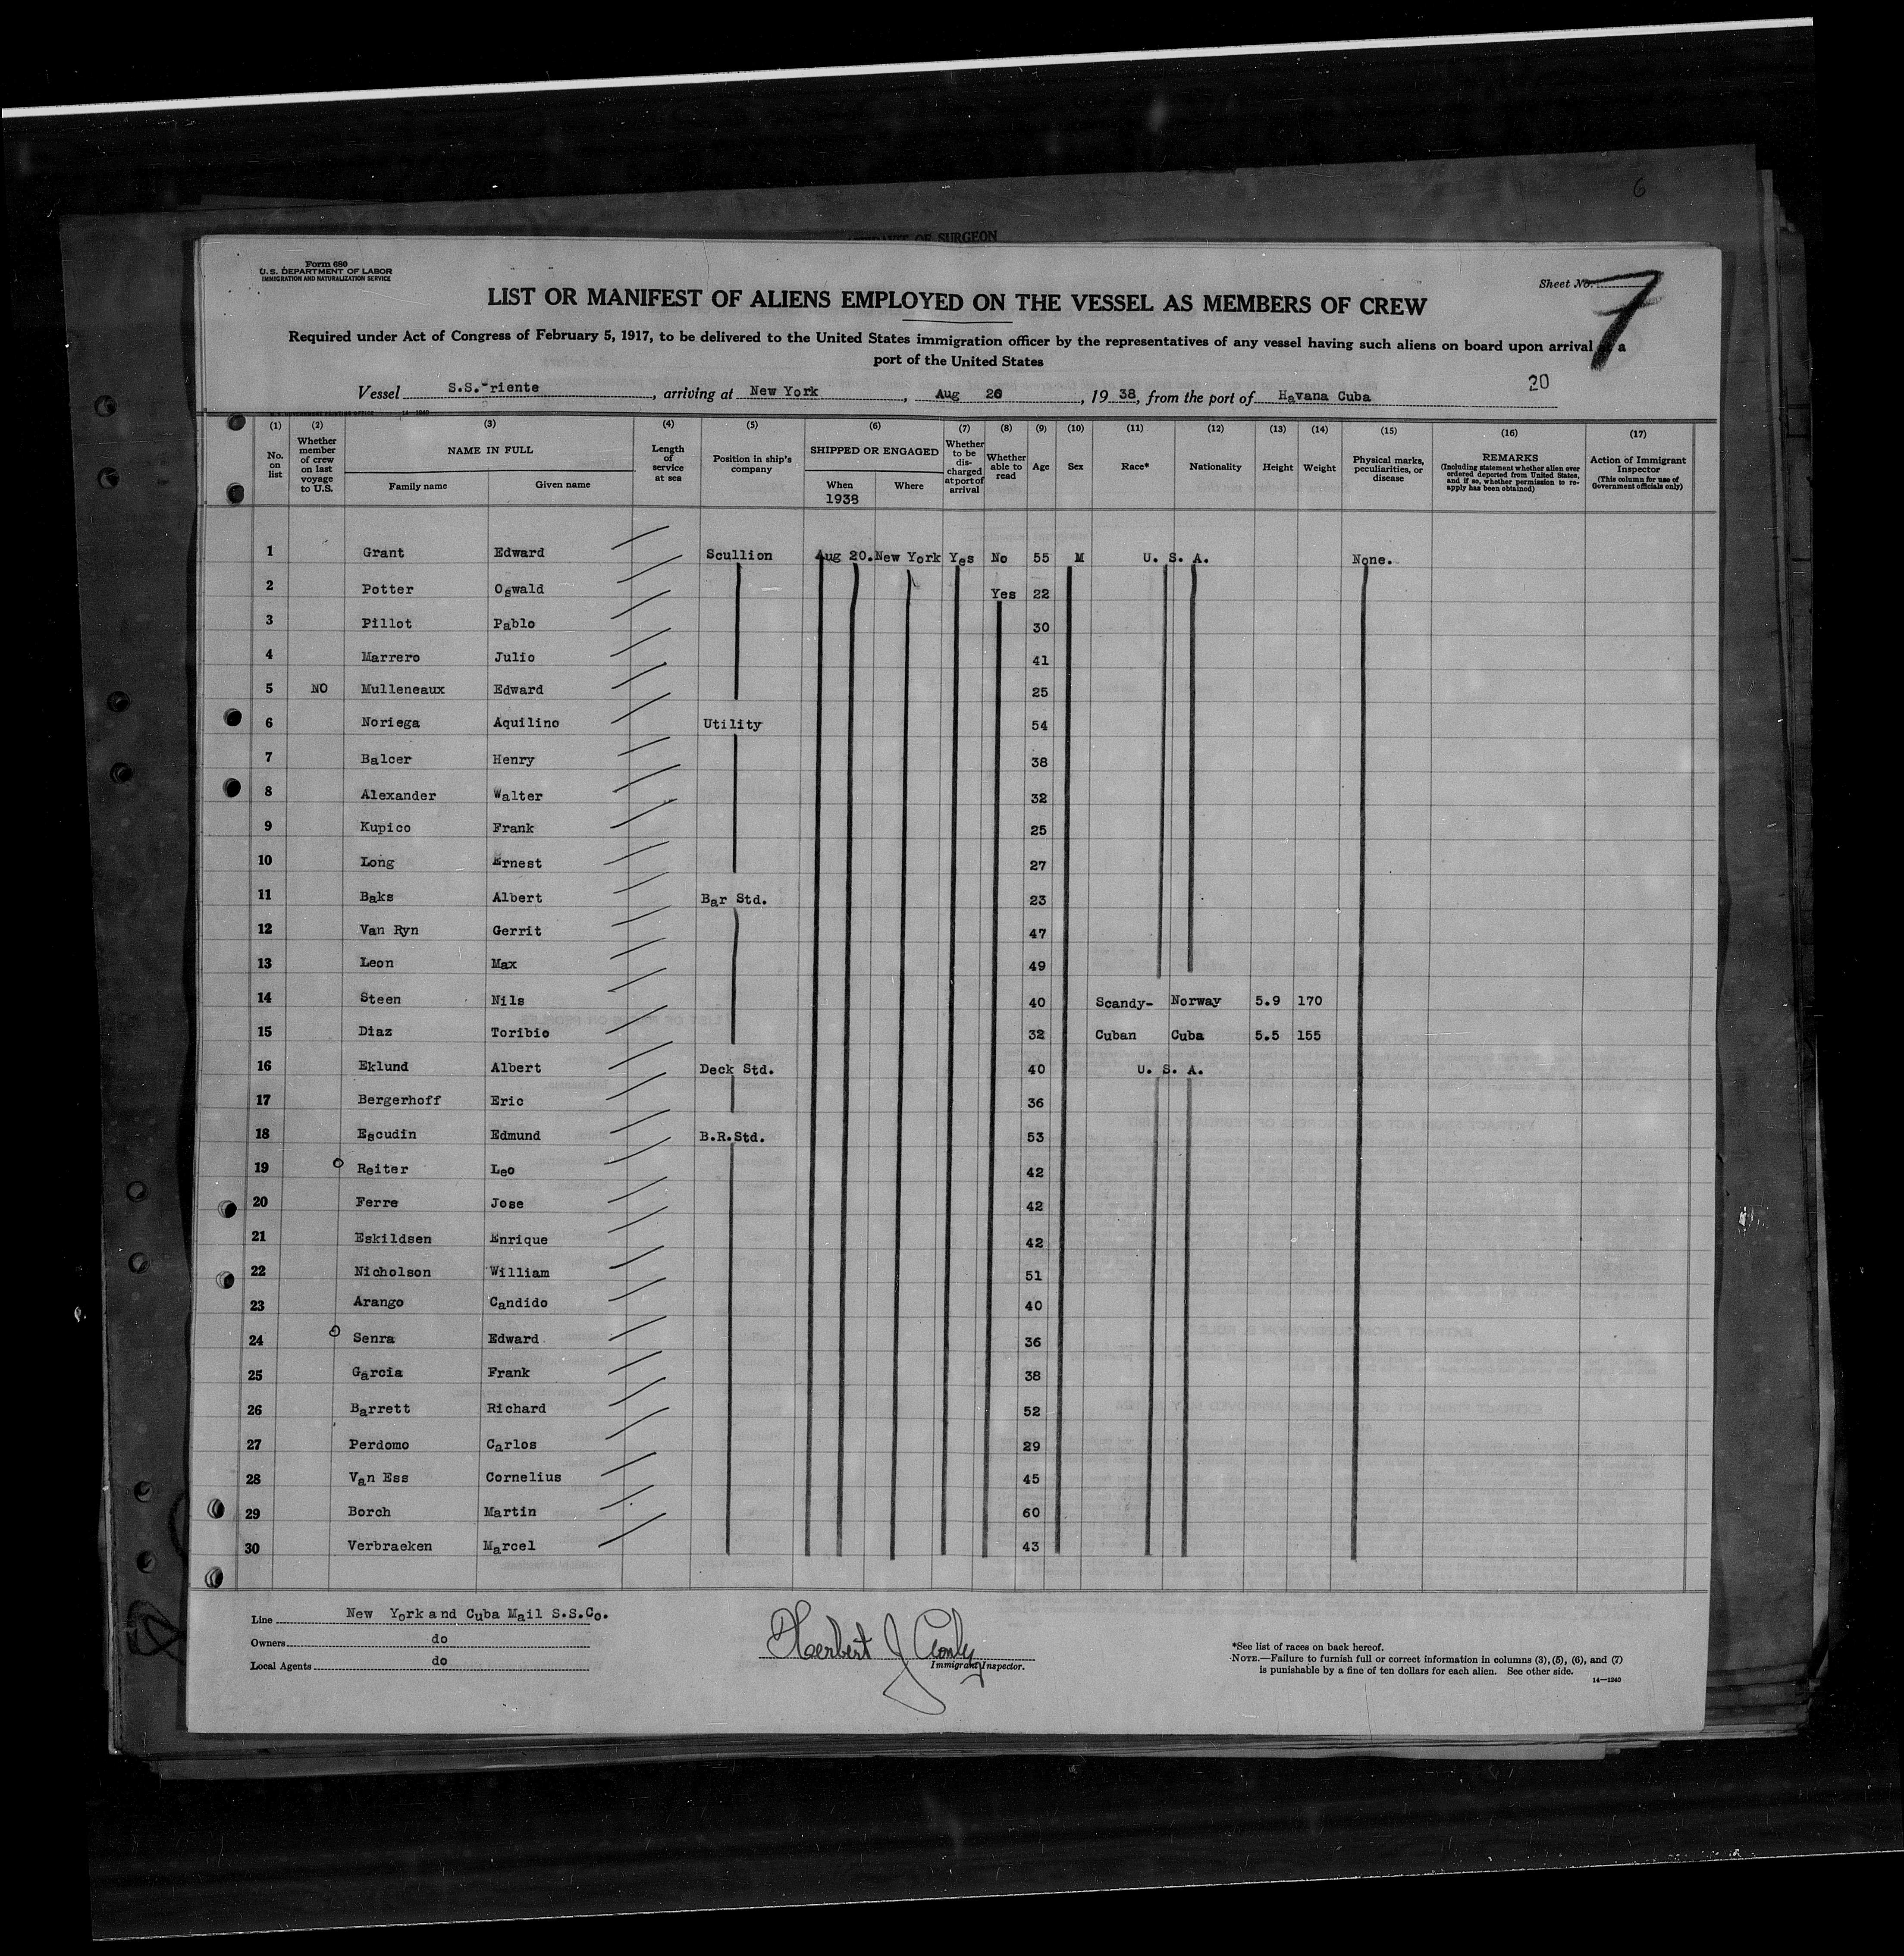 6
OF SURGEON
Form 680
U.S. DEPARTMENT OF LABOR
IMMIGRATION AND NATURALIZATION SERVICE
Sheet No. 7
LIST OR MANIFEST OF ALIENS EMPLOYED ON THE VESSEL AS MEMBERS OF CREW
Required under Act of Congress of February 5, 1917, to be delivered to the United States immigration officer by the representatives of any vessel having such aliens on board upon arrival a
port of the United States
20
Vessel S.S. riente, arriving at New York, Aug 26, 1938, from the port of Havana Cuba
14-1240
(1) (2) (3) (4) (5) (6) (7) (8) (9) (10) (11) (12) (13) (14) (15) (16) (17)
No. on list
Whether member of crew on last voyage to U.S.
NAME IN FULL
Family name
Given name
Length of service at sea
Position in ship's company
SHIPPED OR ENGAGED
When
1938
Where
Whether to be discharged at port of arrival
Whether able to read
Age
Sex
Race*
Nationality
Height
Weight
Physical marks, peculiarities, or disease
REMARKS
(Including statement whether alien ever ordered deported from United States, and if so, whether permission to reapply has been obtained)
Action of Immigrant Inspector
(This column for use of Government officials only)
1 Grant Edward Scullion Aug 20. New York Yes No 55 M U. S. A. None.
2 Potter Oswald Yes 22
3 Pillot Pablo 30
4 Marrero Julio 41
5 NO Mulleneaux Edward 25
6 Noriega Aquilino Utility 54
7 Balcer Henry 38
8 Alexander Walter 32
9 Kupico Frank 25
10 Long Ernest 27
11 Baks Albert Bar Std. 23
12 Van Ryn Gerrit 47
13 Leon Max 49
14 Steen Nils 40 Scandy- Norway 5.9 170
15 Diaz Toribio 32 Cuban Cuba 5.5 155
16 Eklund Albert Deck Std. 40 U. S. A.
17 Bergerhoff Eric 36
18 Escudin Edmund B.R.Std. 53
19 Reiter Leo 42
20 Ferre Jose 42
21 Eskildsen Enrique 42
22 Nicholson William 51
23 Arango Candido 40
24 Senra Edward 36
25 Garcia Frank 38
26 Barrett Richard 52
27 Perdomo Carlos 29
28 Van Ess Cornelius 45
29 Borch Martin 60
30 Verbraeken Marcel 43
Line New York and Cuba Mail S.S.Co.
Owners do
Local Agents do
Herbert J
Immigrant Inspector.
*See list of races on back hereof.
NOTE.—Failure to furnish full or correct information in columns (3), (5), (6), and (7)
is punishable by a fine of ten dollars for each alien. See other side.
14—1240